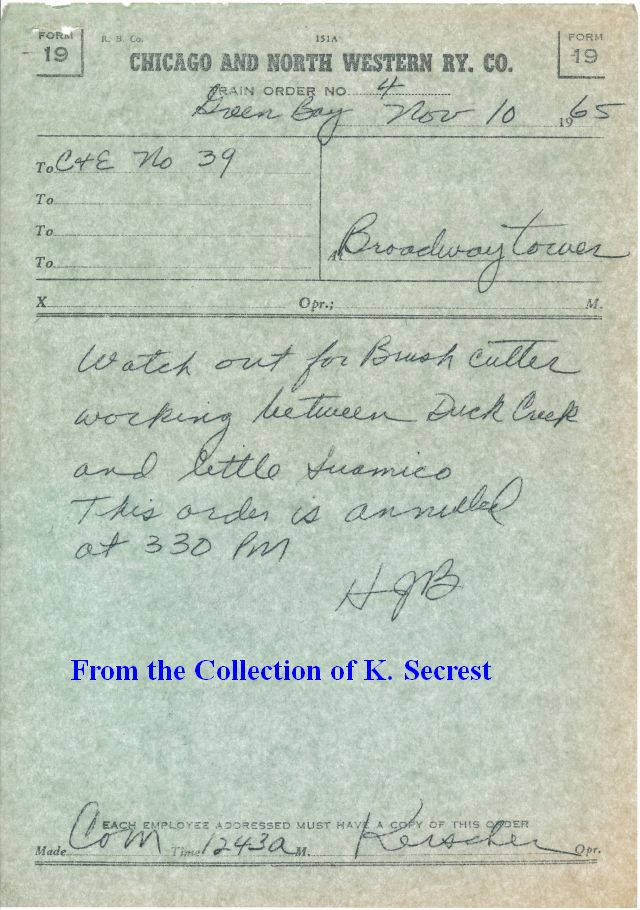 FORM 19
R. S. Co.
151A
FORM 19
CHICAGO AND NORTH WESTERN RY. CO.
TRAIN ORDER NO. 4
Green Bay Nov 10 1965
To C&E No 39
To
To
To
At Broadway tower
X Opr.; M.
Watch out for Brush Cutter
working between Duck Creek
and Little Suamico
This order is annulled
at 330 PM
HJB
From the Collection of K. Secrest
EACH EMPLOYEE ADDRESSED MUST HAVE A COPY OF THIS ORDER
Made Com Time 1243a M. Kerscher Opr.